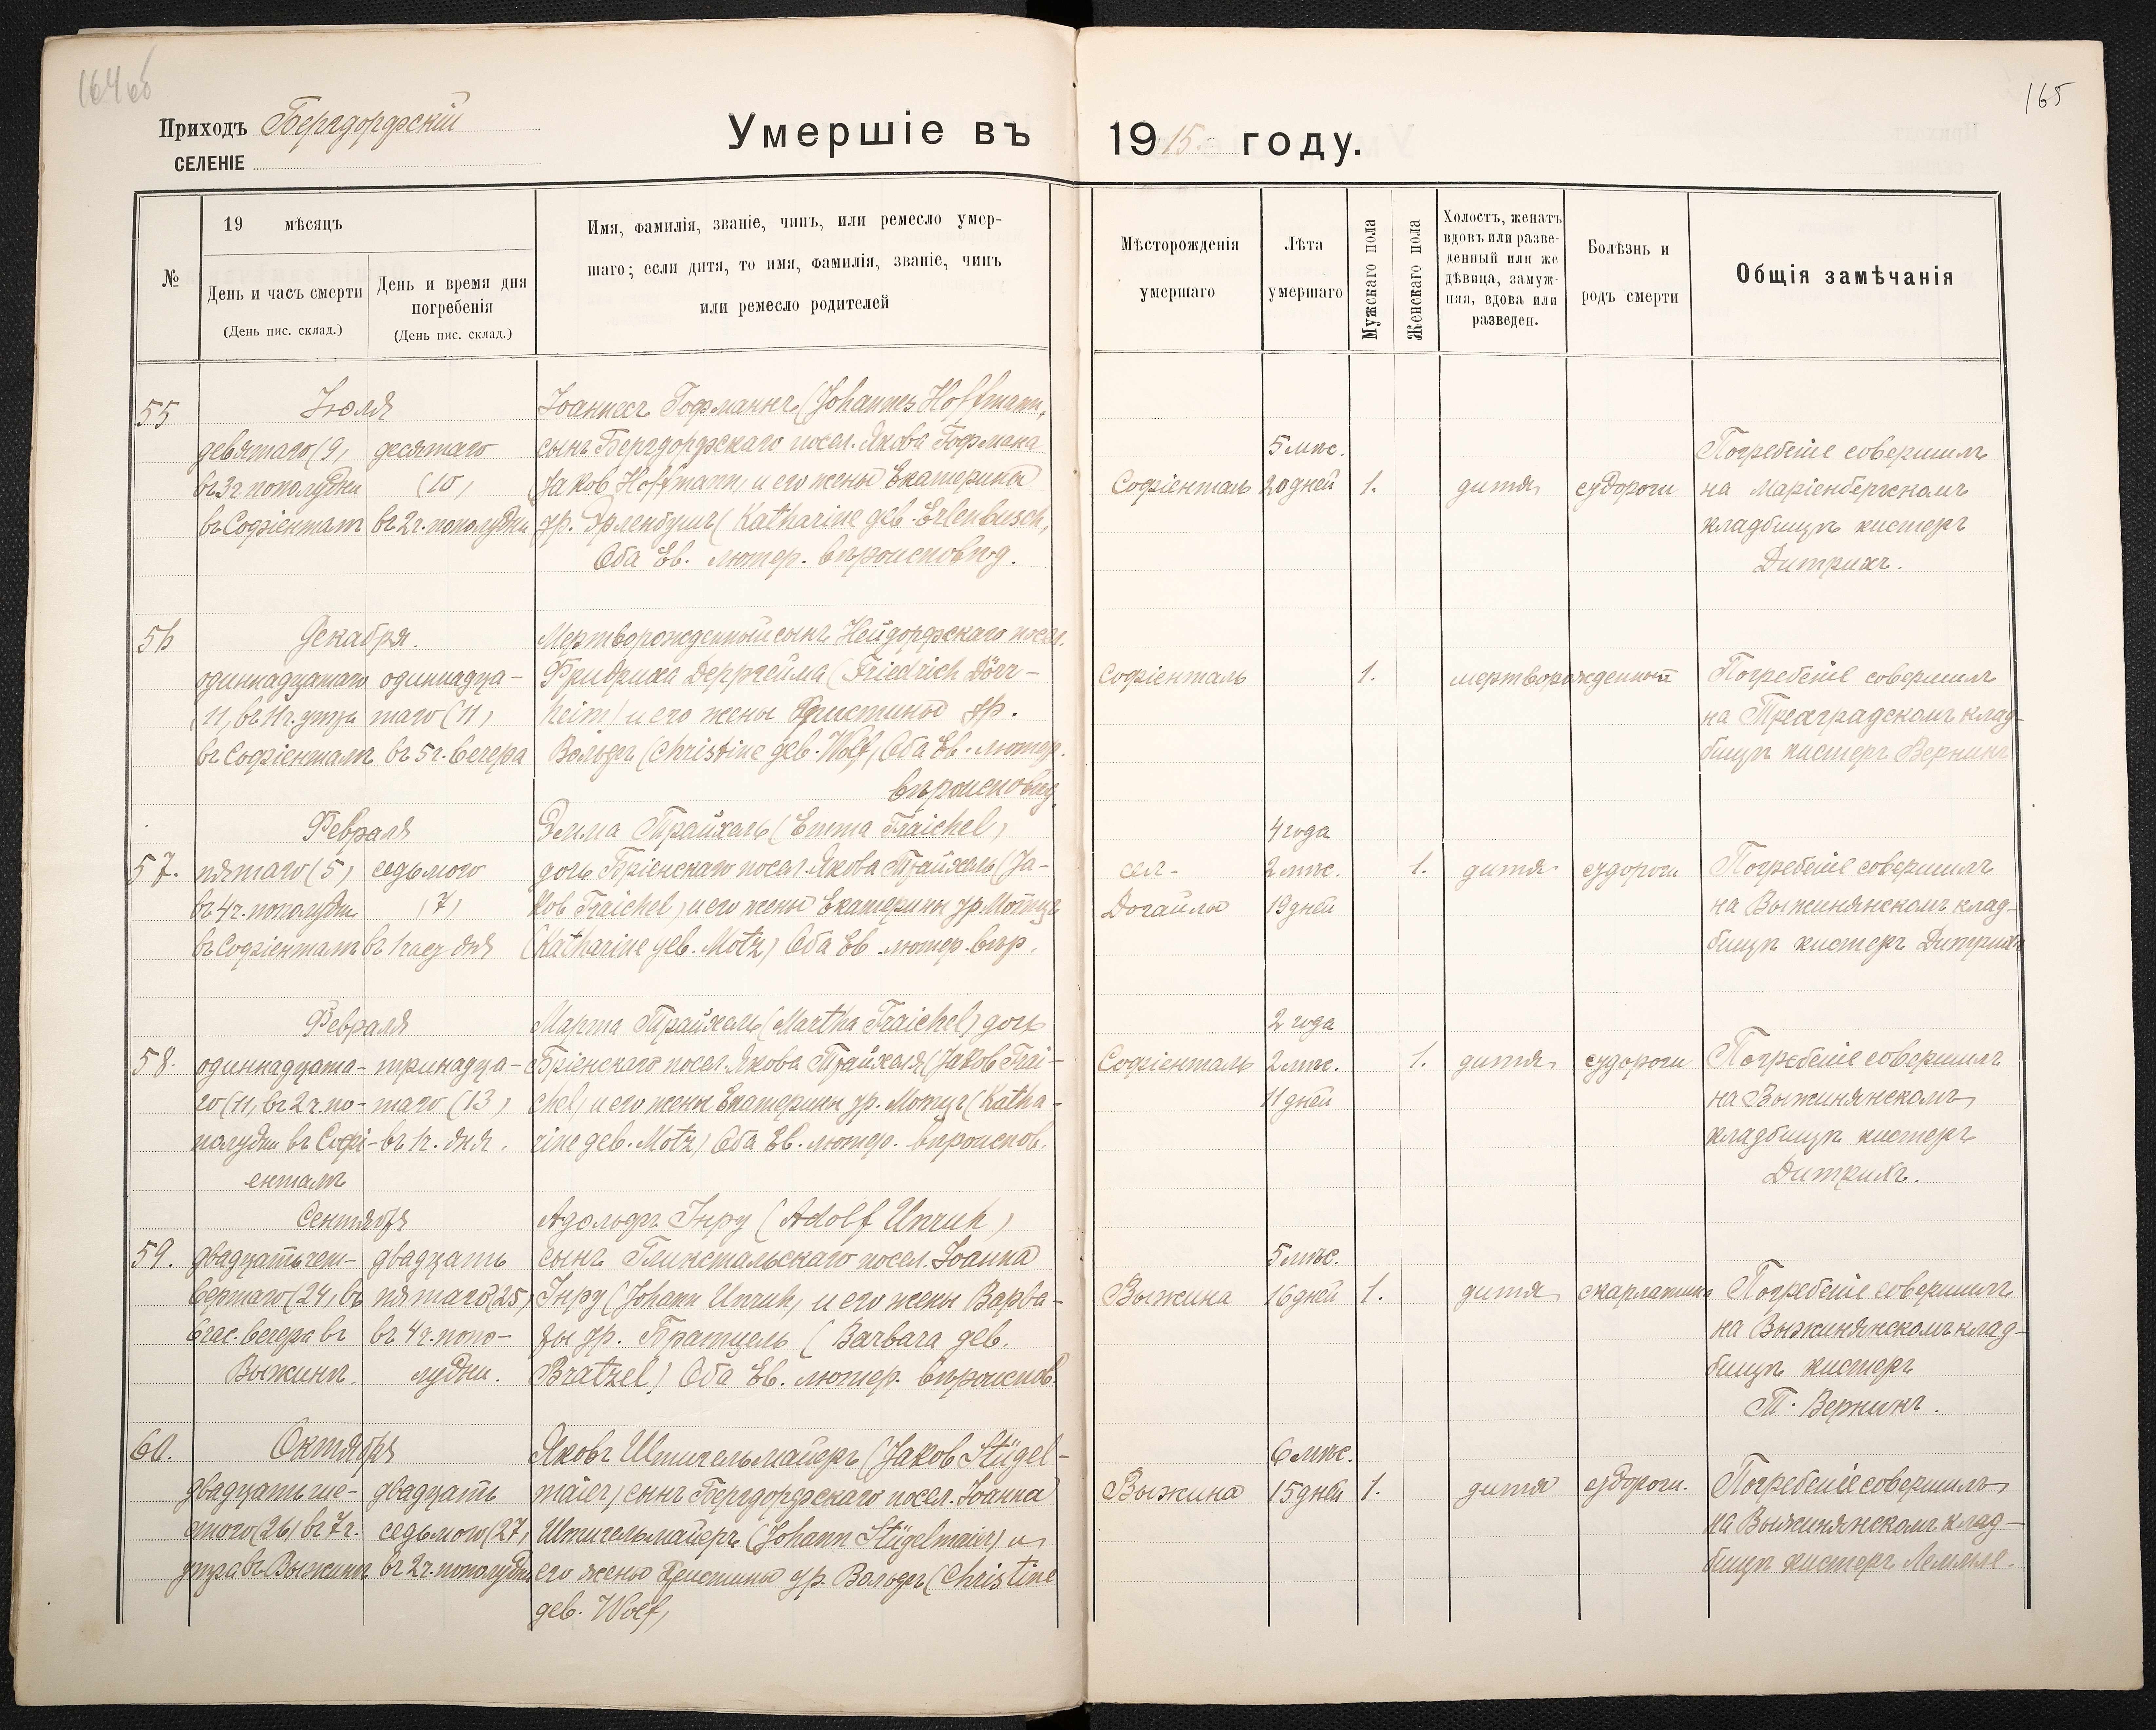 164 об
165
Приходъ Бергдорфскій
СЕЛЕНІЕ
Умершіе въ 1915 году.
№
19 мѣсяцъ
День и часъ смерти
(День пис. склад.)
День и время дня
погребенія
(День пис. склад.)
Имя, фамилія, званіе, чинъ, или ремесло умер-
шаго; если дитя, то имя, фамилія, званіе, чинъ
или ремесло родителей
Мѣсторожденія
умершаго
Лѣта
умершаго
Мужскаго пола
Женскаго пола
Холостъ, женатъ
вдовъ или разве-
денный или же
дѣвица, замуж-
няя, вдова или
разведен.
Болѣзнь и
родъ смерти
Общія замѣчанія
55
Іюля
девятаго (9)
въ 3 ч. пополудни
въ Софіенталѣ
десятаго
(10)
въ 2 ч. пополудни
Іоаннесъ Гофманнъ (Johannes Hoffmann,
сынъ Бергдорфскаго посел. Якова Гофмана
(Jakob Hoffmann) и его жены Екатерины
ур. Эрленбушъ (Katharine geb. Erlenbusch,
Оба Ев. лютер. вѣроисповѣд.
Софіенталь
5 мѣс.
20 дней
1.
дитя
судороги
Погребеніе совершилъ
на Маріенбергскомъ
кладбищѣ кистеръ
Дитрихъ.
56
Декабря.
одиннадцатаго
(11) въ 11 ч. утра
въ Софіенталѣ
одиннадца-
таго (11)
въ 5 ч. вечера
Мертворожденный сынъ Нейдорфскаго посел.
Фридриха Дерргейма (Friedrich Dörr-
heim) и его жены Христины ур.
Вольфъ (Christine geb. Wolf) Оба Ев. лютер.
вѣроисповѣд.
Софіенталь
1.
мертворожденный
Погребеніе совершилъ
на Трехградскомъ клад-
бищѣ кистеръ Вернинг
57.
Февраля
пятаго (5)
въ 4 ч. пополудни
въ Софіенталѣ
седьмого
(7)
въ 1 час дня
Эмма Трайхель (Emma Traichel)
дочь Бріенскаго посел. Якова Трайхель (Ja-
kob Traichel) и его жены Екатерины ур. Мотцъ
(Katharine geb. Motz) Оба Ев. лютер. вѣр.
сел.
Догайлы
4 года
2 мѣс.
19 дней
1.
дитя
судороги
Погребеніе совершилъ
на Выжинянскомъ клад-
бищѣ кистеръ Дитрихъ
58.
Февраля
одиннадцата-
го (11) въ 2 ч. по-
полудни въ Софі-
енталѣ
тринадца-
таго (13)
въ 1 ч. дня.
Марта Трайхель (Martha Traichel) дочь
Бріенскаго посел. Якова Трайхеля (Jakob Trai-
chel) и его жены Екатерины ур. Мотцъ (Katha-
rine geb. Motz) Оба Ев. лютер. вѣроиспов.
Софіенталь
2 года
2 мѣс.
11 дней
1.
дитя
судороги
Погребеніе совершилъ
на Выжинянскомъ
кладбищѣ кистеръ
Дитрихъ.
59.
Сентября
двадцать чет-
вертаго (24) въ
6 час. вечера въ
Выжинѣ.
двадцать
пятаго (25)
въ 4 ч. попо-
лудни.
Адольфъ Унру (Adolf Unruh)
сынъ Глюкстальскаго посел. Іоанна
Унру (Johann Unruh) и его жены Варва-
ры ур. Братцель (Barbara geb.
Bratzel) Оба Ев. лютер. вѣроиспов.
Выжина
5 мѣс.
16 дней
1.
дитя
скарлатина
Погребеніе совершилъ
на Выжинянскомъ клад-
бищѣ кистеръ
Т. Вернингъ.
60.
Октября
двадцать ше-
стого (26) въ 7 ч.
утра въ Выжинѣ
двадцать
седьмого (27)
въ 2 ч. пополудни
Яковъ Штигельмайеръ (Jakob Stügel-
maier) сынъ Бергдорфскаго посел. Іоанна
Штигельмайеръ (Johann Stügelmaier) и
его жены Христины ур. Вольфъ (Christine
geb. Wolf)
Выжина
6 мѣс.
15 дней
1.
дитя
судороги.
Погребеніе совершилъ
на Выжинянскомъ клад-
бищѣ кистеръ Лемпле.